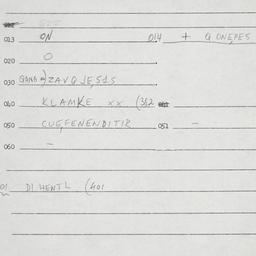 013 ON 014 + G ONEPES
020 O
030 GANA ZAVGJESIS
040 KLAMKE xx (312
050 CUGFENENDITIR 051 -
060 -
01 DI HENTL (401